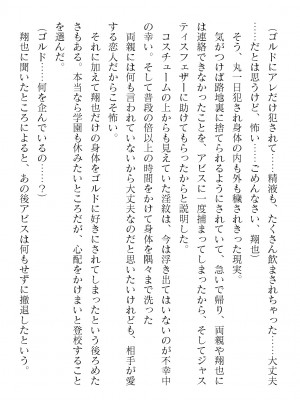 (ゴルドにアレだけ犯されて……精液も、たくさん飲まされちゃった……大丈夫
……だとは思うけど、怖い……ごめんなさい、翔也)
そう、丸一日犯され身体の内も外も穢されきった現実。
気がつけば路地裏に捨てられるようにされていて、急いで帰り、両親や翔也に
は連絡できなかったことを、アビスに一度捕まってしまったから、そしてジャス
ティスフェザーに助けてもらったからと説明した。
コスチュームの上からも見えていた淫紋は、今は浮き出てはいないのが不幸中
の幸い。そして普段の倍以上の時間をかけて身体を隅々まで洗った
両親には何も言われていないから大丈夫なのだと思いたいけれども、相手が愛
する恋人だからこそ怖い。
それに加えて翔也だけの身体をゴルドに好きにされてしまったという後ろめた
さもある。本当なら学園も休みたいところだが、心配をかけまいと登校すること
を選んだ。
(ゴルド……何を企んでいるの……?)
翔也に聞いたところによると、あの後アビスは何もせずに撤退したという。